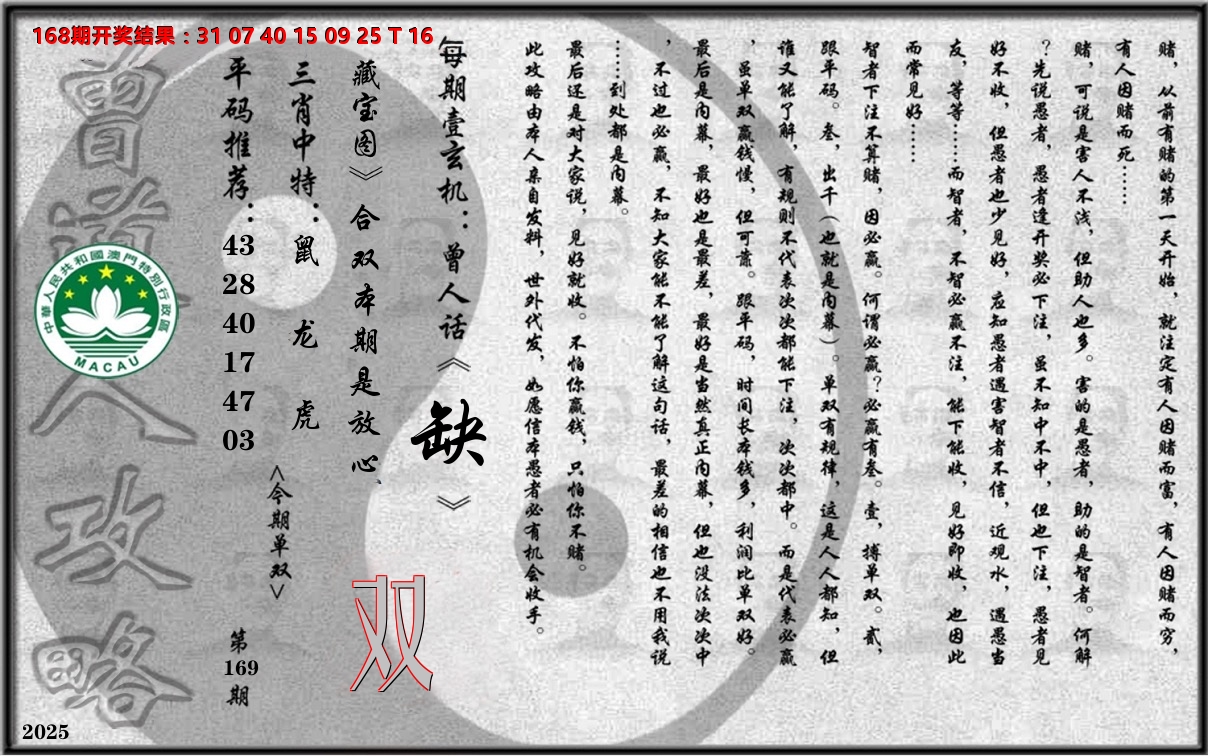 168期开奖结果：31 07 40 15 09 25 T 16
赌，从前有赌的第一天开始，就注定有人因赌而富，有人因赌而穷，
有人因赌而死……
赌，可说是害人不浅，但助人也多。害的是愚者，助的是智者。何解
？先说愚者，愚者逢开奖必下注，虽不知中不中，但也下注，愚者见
好不收，但愚者也少见好，应知愚者遇害智者不信，近观水，遇愚当
友，等等……而智者，不智必赢不注，能下能收，见好即收，也因此
而常见好……
智者下注不算赌，因必赢。何谓必赢？必赢有叁。壹，搏单双。贰，
跟平码。叁，出千（也就是内幕）。单双有规律，这是人人都知，但
谁又能了解，有规则不代表次次都能下注，次次都中。而是代表必赢
，虽单双赢钱慢，但可靠。跟平码，时间长本钱多，利润比单双好。
最后是内幕，最好也是最差，最好是当然真正内幕，但也没法次次中
，不过也必赢，不知大家能不能了解这句话，最差的相信也不用我说
……到处都是内幕。
最后还是对大家说，见好就收。不怕你赢钱，只怕你不赌。
此攻略由本人亲自发料，世外代发，如愿信本愚者必有机会收手。
每期壹玄机：曾人话《缺》
藏宝图》合双本期是放心、
双
三肖中特：鼠 龙 虎
<今期单双>
平码推荐：43 28 40 17 47 03
第169期
曾道人攻略
中華人民共和國澳門特別行政區
MACAU
2025